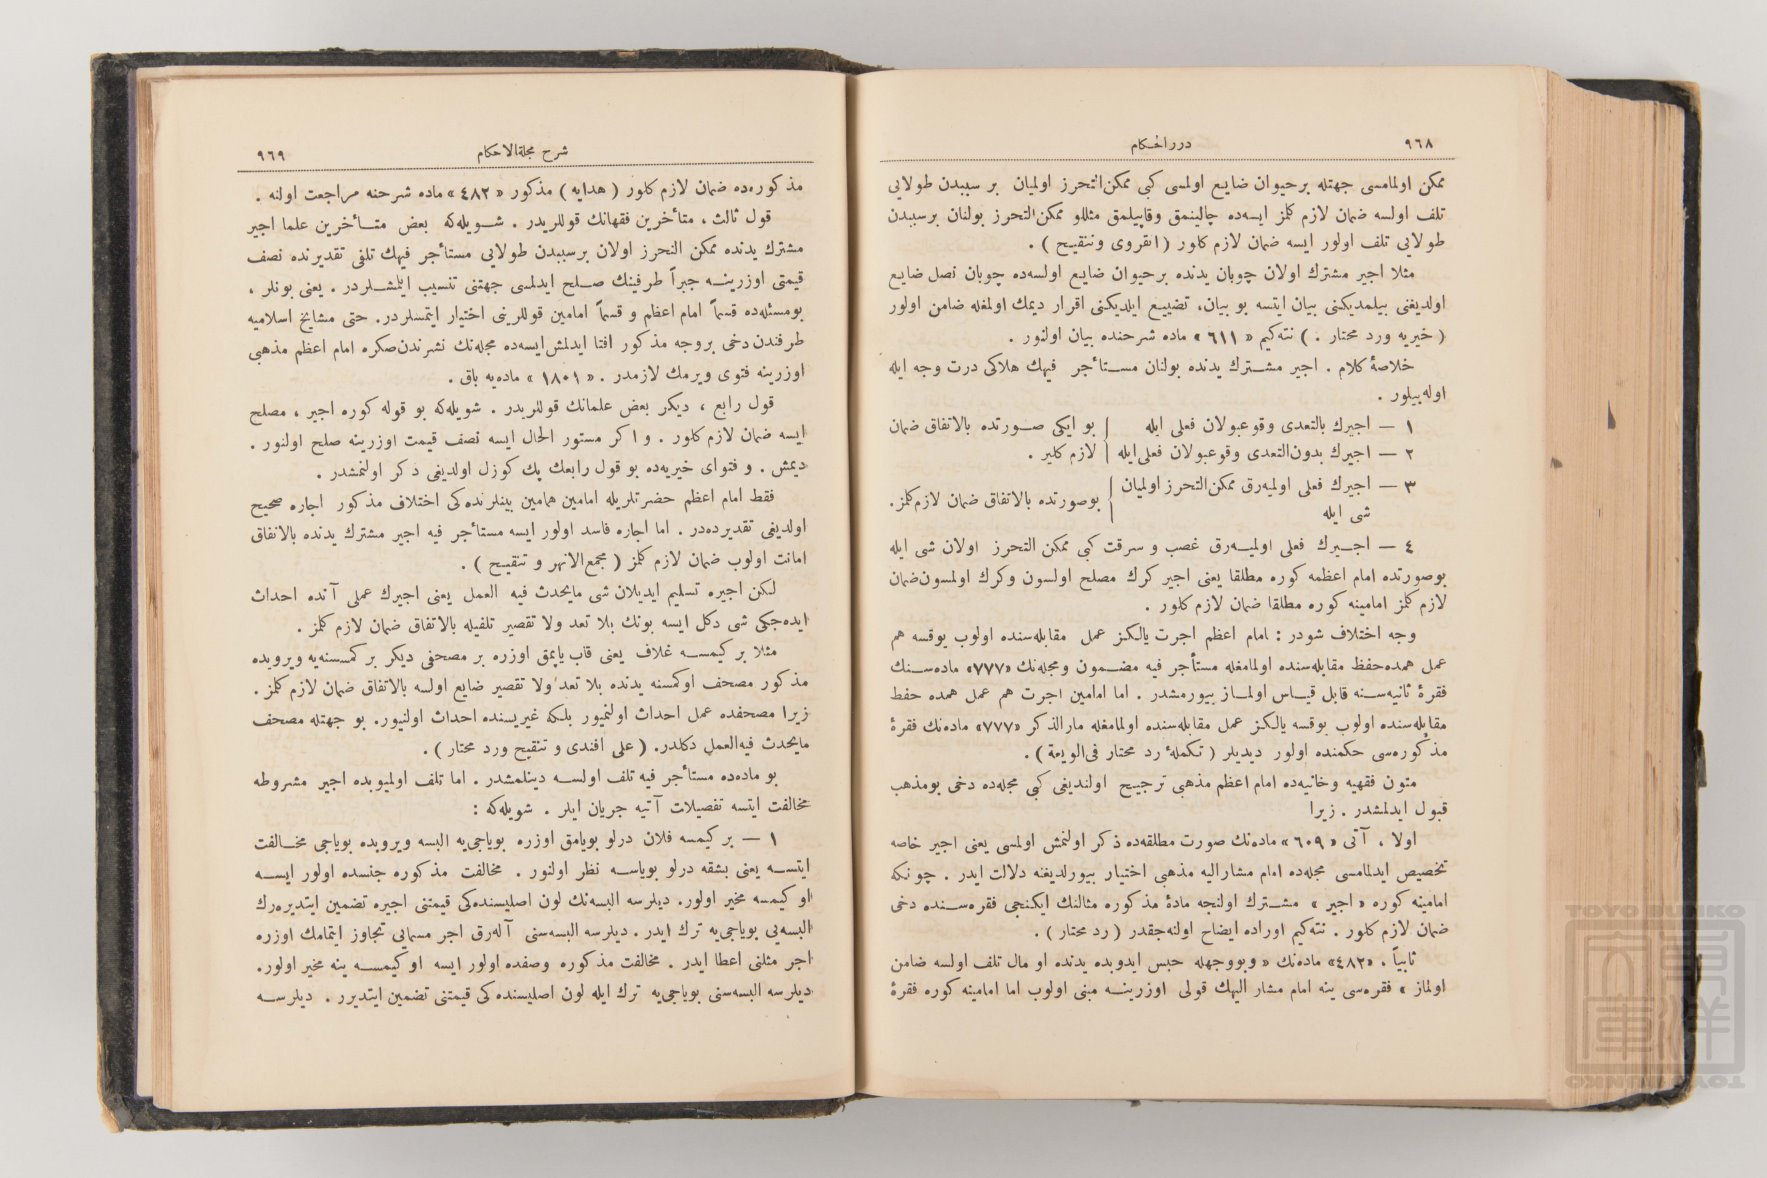 ٩٦٨
درر الحكام
ممكن اولمامسی جهتله بر حیوان ضایع اولمسی كبی ممكن التحرز اولمیان بر سببدن طولایی
تلف اولسه ضمان لازم كلمز ایسه‌ده چالینمق وقاپیلمق مثللو ممكن التحرز بولنان برسببدن
طولایی تلف اولور ایسه ضمان لازم كلور ( انقروی وتنقیح ) .
مثلا اجیر مشترك اولان چوبان یدنده برحیوان ضایع اولسه‌ده چوبان نصل ضایع
اولدیغنی بیلمدیكنی بیان ایتسه بو بیان، تضییع ایلدیكنی اقرار دیمك اولمغله ضامن اولور
( خیریه ورد محتار . ) نته‌كیم « ٦١١ » ماده شرحنده بیان اولنور .
خلاصهٔ كلام . اجیر مشترك یدنده بولنان مستأجر فیهك هلاكی درت وجه ایله
اوله‌بیلور .
١ — اجیرك بالتعدی وقوعبولان فعلی ایله } بو ایكی صورتده بالاتفاق ضمان
٢ — اجیرك بدون‌التعدی وقوعبولان فعلی‌ایله } لازم كلیر .
٣ — اجیرك فعلی اولمیه‌رق ممكن‌التحرز اولمیان } بوصورتده بالاتفاق ضمان لازم‌كلمز.
شی ایله
٤ — اجیرك فعلی اولمیه‌رق غصب و سرقت كبی ممكن التحرز اولان شی ایله
بوصورتده امام اعظمه كوره مطلقا یعنی اجیر كرك مصلح اولسون وكرك اولمسون‌ضمان
لازم كلمز امامینه كوره مطلقا ضمان لازم كلور .
وجه اختلاف شودر : امام اعظم اجرت یالكز عمل مقابله‌سنده اولوب یوقسه هم
عمل همده‌حفظ مقابله‌سنده اولمامغله مستأجر فیه مضمون ومجله‌نك «٧٧٧» ماده‌سنك
فقرهٔ ثانیه‌سنه قابل قیاس اولماز بیورمشدر . اما امامین اجرت هم عمل همده حفظ
مقابله‌سنده اولوب یوقسه یالكز عمل مقابله‌سنده اولمامغله مارالذكر «٧٧٧» ماده‌نك فقرهٔ
مذكوره‌سی حكمنده اولور دیدیلر ( تكملهٔ رد محتار فی‌الودیعة ) .
متون فقهیه وخانیه‌ده امام اعظم مذهبی ترجیح اولندیغی كبی مجله‌ده دخی بومذهب
قبول ایدلمشدر . زیرا
اولا . آتی « ٦٠٩ » ماده‌نك صورت مطلقه‌ده ذكر اولنمش اولمسی یعنی اجیر خاصه
تخصیص ایدلمامسی مجله‌ده امام مشارالیه مذهبی اختیار بیورلدیغنه دلالت ایدر . چونكه
امامینه كوره « اجیر » مشترك اولنجه مادهٔ مذكوره مثالنك ایكنجی فقره‌سنده دخی
ضمان لازم كلور . نته‌كیم اوراده ایضاح اولنه‌جقدر ( رد محتار ) .
ثانیاً . «٤٨٢» ماده‌نك « وبووجهله حبس ایدوبده یدنده او مال تلف اولسه ضامن
اولماز » فقره‌سی ینه امام مشار الیهك قولی اوزرینه مبنی اولوب اما امامینه كوره فقرهٔ
شرح مجلة‌الاحكام
٩٦٩
مذكوره‌ده ضمان لازم كلور ( هدایه ) مذكور « ٤٨٢ » ماده شرحنه مراجعت اولنه .
قول ثالث ، متأخرین فقهانك قوللریدر . شویله‌كه بعض متأخرین علما اجیر
مشترك یدنده ممكن التحرز اولان برسببدن طولایی مستأجر فیهك تلفی تقدیرنده نصف
قیمتی اوزرینه جبراً طرفینك صلح ایدلمسی جهتنی تنسیب ایلمشلردر . یعنی بونلر ،
بومسئله‌ده قسماً امام اعظم و قسماً امامین قوللرینی اختیار ایتمسلردر. حتی مشایخ اسلامیه
طرفندن دخی بروجه مذكور افتا ایدلمش‌ایسه‌ده مجله‌نك نشرندن‌صكره امام اعظم مذهبی
اوزرینه فتوی ویرمك لازمدر . « ١٨٠١ » ماده‌یه باق .
قول رابع ، دیكر بعض علمانك قوللریدر . شویله‌كه بو قوله كوره اجیر ، مصلح
ایسه ضمان لازم كلور . و اكر مستور الحال ایسه نصف قیمت اوزرینه صلح اولنور .
دیمش . و فتوای خیریه‌ده بو قول رابعك پك كوزل اولدیغی ذكر اولنمشدر .
فقط امام اعظم حضرتلریله امامین همامین بینلرنده‌كی اختلاف مذكور اجاره صحیح
اولدیغی تقدیرده‌در . اما اجاره فاسد اولور ایسه مستأجر فیه اجیر مشترك یدنده بالاتفاق
امانت اولوب ضمان لازم كلمز ( مجمع‌الانهر و تنقیح ) .
لكن اجیره تسلیم ایدیلان شی مایحدث فیه العمل یعنی اجیرك عملی آنده احداث
ایده‌جكی شی دكل ایسه بونك بلا تعد ولا تقصیر تلفیله بالاتفاق ضمان لازم كلمز .
مثلا بر كیمسه غلاف یعنی قاب یاپمق اوزره بر مصحفی دیكر بر كمسنه‌یه ویروبده
مذكور مصحف اوكمسنه یدنده بلا تعد ولا تقصیر ضایع اولسه بالاتفاق ضمان لازم كلمز.
زیرا مصحفده عمل احداث اولنمیور بلكه غیریسنده احداث اولنیور. بو جهتله مصحف
مایحدث فیه‌العمل دكلدر. ( علی افندی و تنقیح ورد محتار ) .
بو ماده‌ده مستأجر فیه تلف اولسه دینلمشدر . اما تلف اولمیوبده اجیر مشروطه
مخالفت ایتسه تفصیلات آتیه جریان ایلر . شویله‌كه :
١ — بر كیمسه فلان درلو بویامق اوزره بویاجی‌یه البسه ویروبده بویاجی مخالفت
ایتسه یعنی بشقه درلو بویاسه نظر اولنور . مخالفت مذكوره جنسده اولور ایسه
او كیمسه مخیر اولور. دیلرسه البسه‌نك لون اصلیسنده‌كی قیمتنی اجیره تضمین ایتدیره‌رك
البسه‌یی بویاجی‌یه ترك ایدر . دیلرسه البسه‌سنی آله‌رق اجر مسمایی تجاوز ایتمامك اوزره
اجر مثلنی اعطا ایدر . مخالفت مذكوره وصفده اولور ایسه او كیمسه ینه مخیر اولور.
دیلرسه البسه‌سنی بویاجی‌یه ترك ایله لون اصلیسنده كی قیمتنی تضمین ایتدیرر . دیلرسه
TOYO BUNKO
東洋文庫
TOYO BUNKO